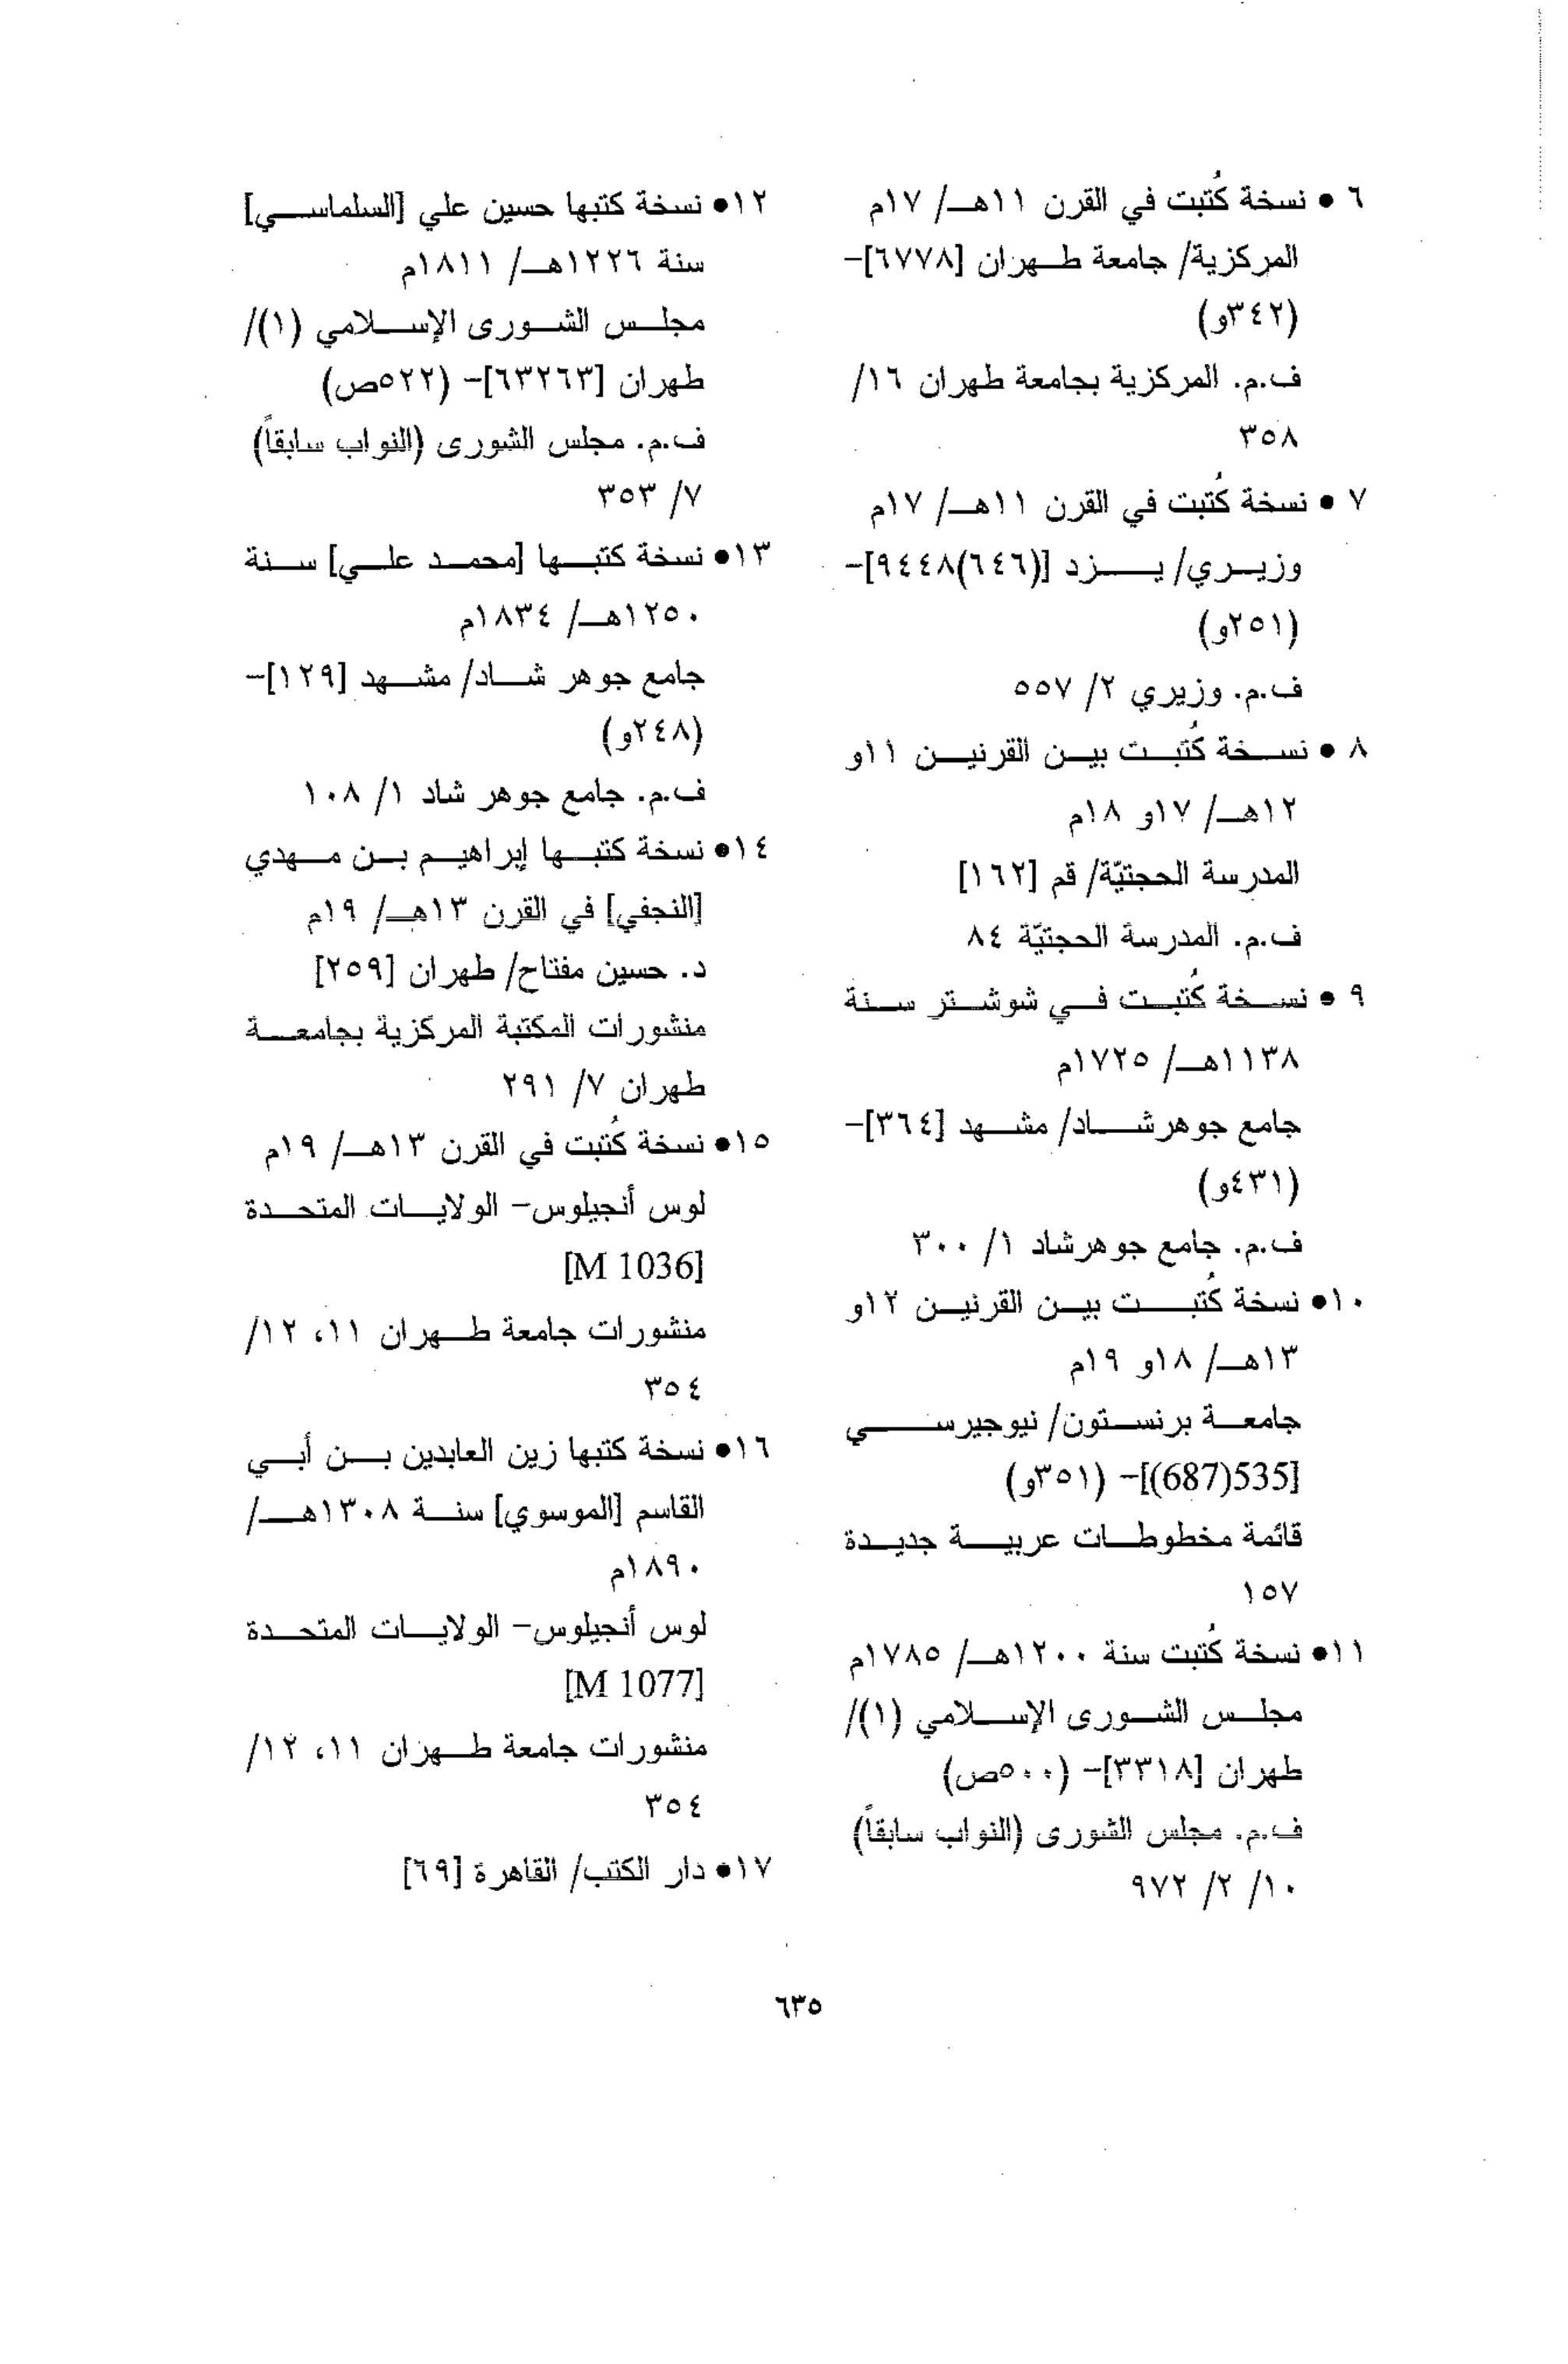 ٦ • نسخة كُتبت في القرن ١١هـ/ ١٧م
المركزية/ جامعة طهران [٦٧٧٨]-
(٣٤٢و)
ف.م. المركزية بجامعة طهران ١٦/
٣٥٨
٧ • نسخة كُتبت في القرن ١١هـ/ ١٧م
وزيري/ يزد [(٦٤٦)٩٤٤٨]-
(٢٥١و)
ف.م. وزيري ٢/ ٥٥٧
٨ • نسخة كُتبت بين القرنين ١١و
١٢هـ/ ١٧و ١٨م
المدرسة الحجتيّة/ قم [١٦٢]
ف.م. المدرسة الحجتيّة ٨٤
٩ • نسخة كُتبت في شوشتر سنة
١١٣٨هـ/ ١٧٢٥م
جامع جوهرشاد/ مشهد [٣٦٤]-
(٤٣١و)
ف.م. جامع جوهرشاد ١/ ٣٠٠
١٠• نسخة كُتبت بين القرنين ١٢و
١٣هـ/ ١٨و ١٩م
جامعة برنستون/ نيوجيرسي
[535(687)]- (٣٥١و)
قائمة مخطوطات عربية جديدة
١٥٧
١١• نسخة كُتبت سنة ١٢٠٠هـ/ ١٧٨٥م
مجلس الشورى الإسلامي (١)/
طهران [٣٣١٨]- (٥٠٠ص)
ف.م. مجلس الشورى (النواب سابقاً)
١٠/ ٢/ ٩٧٢
١٢• نسخة كتبها حسين علي [السلماسي]
سنة ١٢٢٦هـ/ ١٨١١م
مجلس الشورى الإسلامي (١)/
طهران [٦٣٢٦٣]- (٥٢٢ص)
ف.م. مجلس الشورى (النواب سابقاً)
٧/ ٣٥٣
١٣• نسخة كتبها [محمد علي] سنة
١٢٥٠هـ/ ١٨٣٤م
جامع جوهر شاد/ مشهد [١٢٩]-
(٢٤٨و)
ف.م. جامع جوهر شاد ١/ ١٠٨
١٤• نسخة كتبها إبراهيم بن مهدي
[النجفي] في القرن ١٣هـ/ ١٩م
د. حسين مفتاح/ طهران [٢٥٩]
منشورات المكتبة المركزية بجامعة
طهران ٧/ ٢٩١
١٥• نسخة كُتبت في القرن ١٣هـ/ ١٩م
لوس أنجيلوس- الولايات المتحدة
[M 1036]
منشورات جامعة طهران ١١، ١٢/
٣٥٤
١٦• نسخة كتبها زين العابدين بن أبي
القاسم [الموسوي] سنة ١٣٠٨هـ/
١٨٩٠م
لوس أنجيلوس- الولايات المتحدة
[M 1077]
منشورات جامعة طهران ١١، ١٢/
٣٥٤
١٧• دار الكتب/ القاهرة [٦٩]
٦٣٥